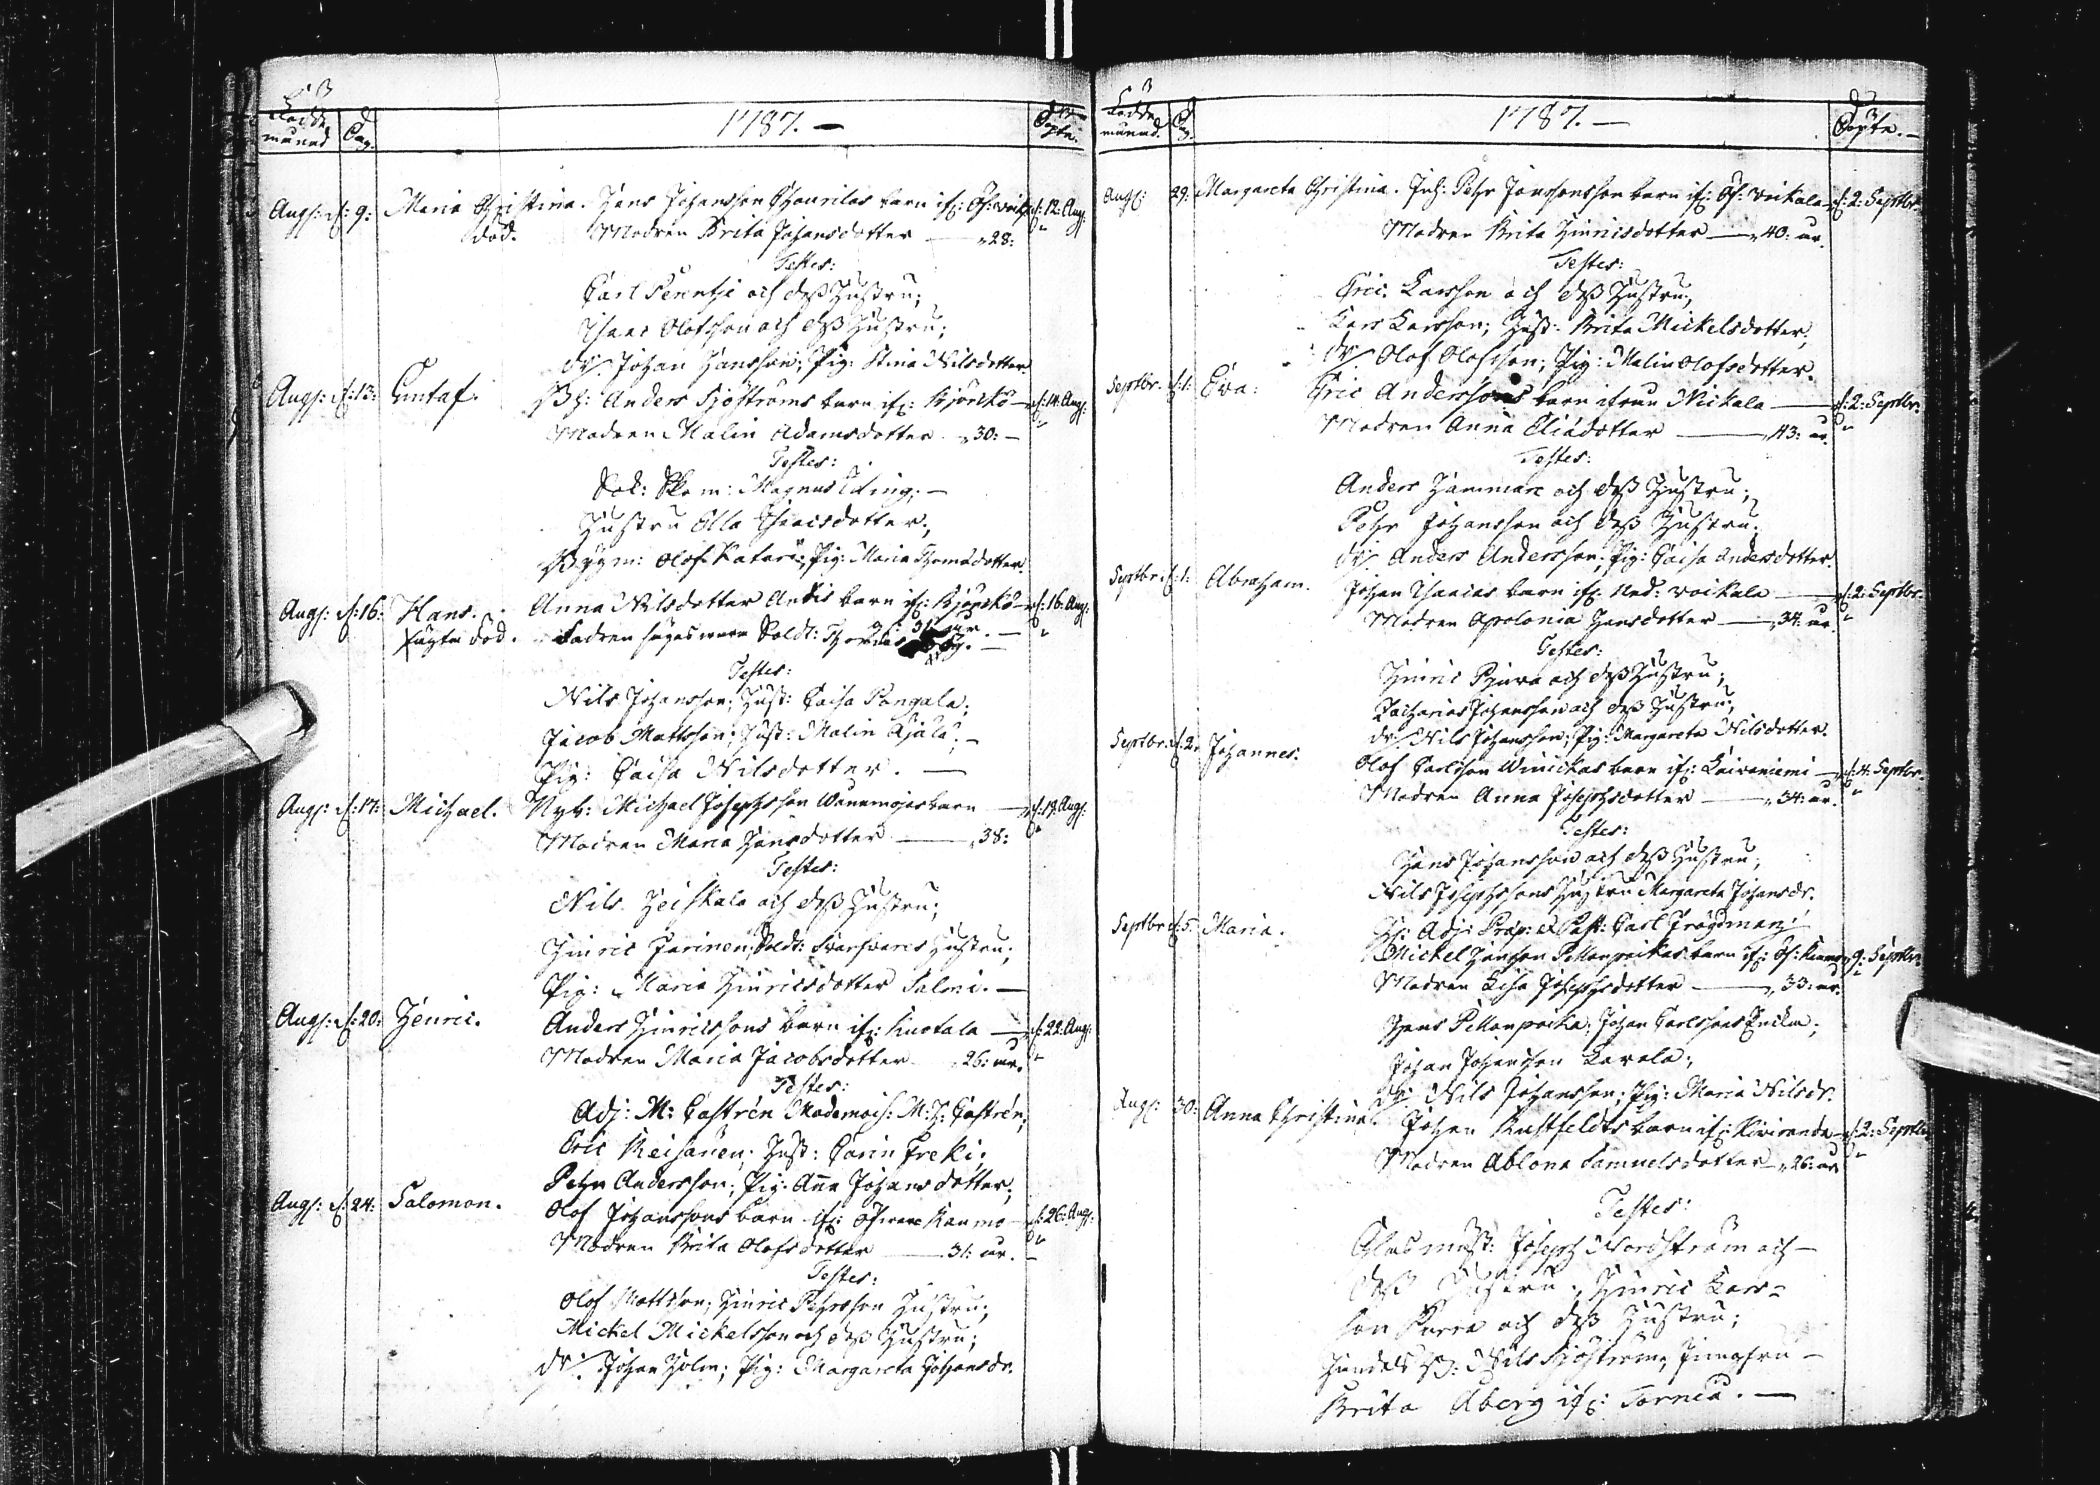 Födde månad Dag. 1787. — Döpte.
Aug: d: 9: Maria Christina. Hans Johansson Thourilas barn ifr: Öf: Voik d: 12: Aug:
död. Modren Brita Johansdotter — 28:
Testes:
Carl Penntzi och dess Hustru;
Isaac Olofsson och dess Hustru;
Dr: Johan Hansson; Pig: Stina Nilsdotter.
Aug: d: 13: Gustaf. Anders Sjöströms barn ifr: Björckö d: 14: Aug:
Modren Malin Adamsdotter — 30: —
Testes:
Sok: Skom: Magnus Iding; —
Hustru Ella Thracisdotter;
Olof Katari; Pig: Maria Thomædotter.
Aug: d: 16: Hans. Anna Nilsdotter Andis barn ifr: Björckö d: 16: Aug:
oägta död. Fadren säges vara Soldt:
Testes:
Nils Johansson; Hust: Caisa Pangala;
Jacob Mattsson; Hust: Malin Kjälä; —
Pig: Caisa Nilsdotter. —
Aug: d: 17: Michael. Nyb: Michael Josephsson Wanamojas barn — d: 19: Aug:
Modren Maria Hansdotter — 38:
Testes:
Nils Heiskala och dess Hustru;
Hinric Farinen; Soldt: Svarfvares Hustru;
Pig: Maria Hinricsdotter Salmi. —
Aug: d: 20: Henric. Anders Hinricssons barn ifr: Kuotala — d: 22: Aug:
Modren Maria Jacobsdotter 26: år.
Testes:
Adj: M: Castrén Mademois: M: H: Castrén;
Eric Keisarien; Hust: Carin Freki;
Petter Andersson; Pig: Anna Johansdotter;
Aug: d: 24: Salomon. Olof Johanssons barn ifr: Öfvere Raumo d: 26: Aug:
Modren Brita Olofsdotter — 31: år. —
Testes:
Olof Mattsson; Hinric Pehrsson Hustru;
Mickel Mickelsson och dess Hustru;
Dr: Johan Holm; Pig: Margareta Johansdr.
Födde månad. Dag. 1787. — Döpte. —
Aug: 29. Margareta Christina. Inh: Pehr Jonssonsson barn ifr: Öf: Voikala d: 2: Septbr.
Modren Brita Hinricsdotter — 40: år.
Testes:
Eric Larsson och dess Hustru;
Lars Larsson; Hust: Brita Mickelsdotter;
Dr: Olof Olofsson; Pig: Malin Olofsdotter.
Septbr. d: 1: Eva: Eric Anderssons barn ifrån Nickala — d: 2: Septbr.
Modren Anna Eliædotter — 43: år.
Testes:
Anders Hammare och dess Hustru;
Pehr Johansson och dess Hustru;
Dr: Anders Andersson; Pig: Caisa Andersdotter.
Septbr. d: 1: Abraham. Johan Isaacas barn ifr: Ned: Voikala — d: 2: Septbr.
Modren Apolonia Hansdotter — 34: år.
Testes:
Hinric Pjuva och dess Hustru;
Zacharias Johansson och dess Hustru;
Dr: Nils Johansson; Pig: Margareta Nilsdotter.
Septbr. d: 2: Johannes. Olof Carlsson Winickas barn ifr: Laivaniemi — d: 4: Septbr.
Modren Anna Josephsdotter — 34: år.
Testes:
Hans Johansson och dess Hustru;
Nils Josephssons Hustru Margareta Johansdr.
Hr: Adj: Præp: et Past: Carl Frögdman;
Septbr d: 5. Maria. Mickel Hansson Pellonpoikas barn ifr: Öf: Raumo 9: Septbr.
Modren Lisa Josephsdotter — 33: år.
Hans Pellonpoika; Johan Carlssons Enckia;
Johan Johansson Kavala;
Dr: Nils Johansson; Pig: Maria Nilsdr.
Aug: 30: Anna Christina. Johan Rustfeldts barn ifr: Kiviranda d: 2: Septbr
Modren Ablona Samuelsdotter 26: år
Testes:
Glasmäst: Joseph Nordström och —
dess Hustru; Hinric Lars-
son Purra och dess Hustru;
Handels B: Nils Sjöström; Jungfru —
Brita Åberg ifr: Torneå. —